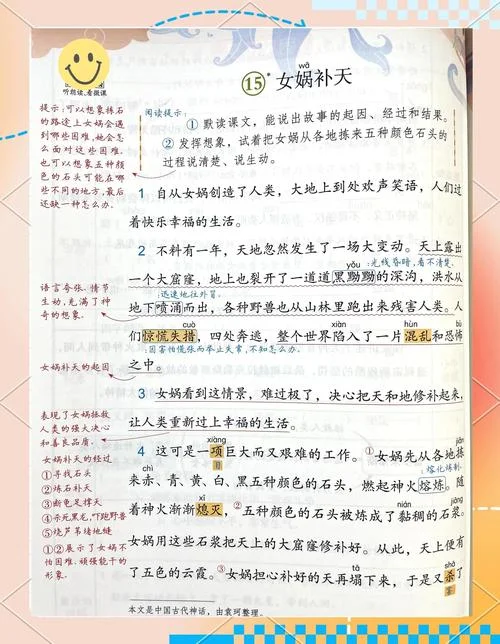 听朗读,看微课
wā
15* 女娲补天
阅读提示:
① 默读课文,能说出故事的起因、经过和结果。
② 发挥想象,试着把女娲从各地拣来五种颜色石头的
过程说清楚、说生动。
提示:可以想象拣石
的路途上女娲会遇
到哪些困难,她会怎
么面对这些困难.
也可以想象五种颜
色的石头可能在哪
些不同的地方,最后
还缺一种怎么办.
1 自从女娲创造了人类,大地上到处欢声笑语,人们过
着快乐幸福的生活。
2 不料有一年,天地忽然发生了一场大变动。天上露出
yǒu
光线昏暗,看不清楚.
一个大窟窿,地上也裂开了一道道黑黝黝的深沟,洪水从
迅速地往外冒.
地下喷涌而出,各种野兽也从山林里跑出来残害人类。人
cuò xiàn hùn bù
们惊慌失措,四处奔逃,整个世界陷入了一片混乱和恐怖
因害怕慌张而举止失常,不知怎么办.
之中。
语言夸张,情节
生动,充满了神
奇的想象.
女娲补天的起因
3 女娲看到这情景,难过极了,决心把天和地修补起来,
让人类重新过上幸福的生活。
表现了女娲拯救
人类的强大决心
和善良品质.
xiàng jiǎn
4 这可是一项巨大而又艰难的工作。①女娲先从各地拣
chì
目
熔化炼制.
来赤、青、黄、白、黑五种颜色的石头,燃起神火熔炼。随
xī
着神火渐渐熄灭,②五种颜色的石头被炼成了黏稠的石浆。
女娲用这些石浆把天上的大窟窿修补好。从此,天上便有
了五色的云霞。③女娲担心补好的天再塌下来,于是又杀了
女娲补天的经过
①寻找石头
②炼石补天
③断龟足撑天
④杀死黑龙,吓跑野兽
⑤烧芦苇堵地缝
①②展示了女娲不
怕困难、顽强能干的
形象.
本文是中国古代神话,由袁珂整理。